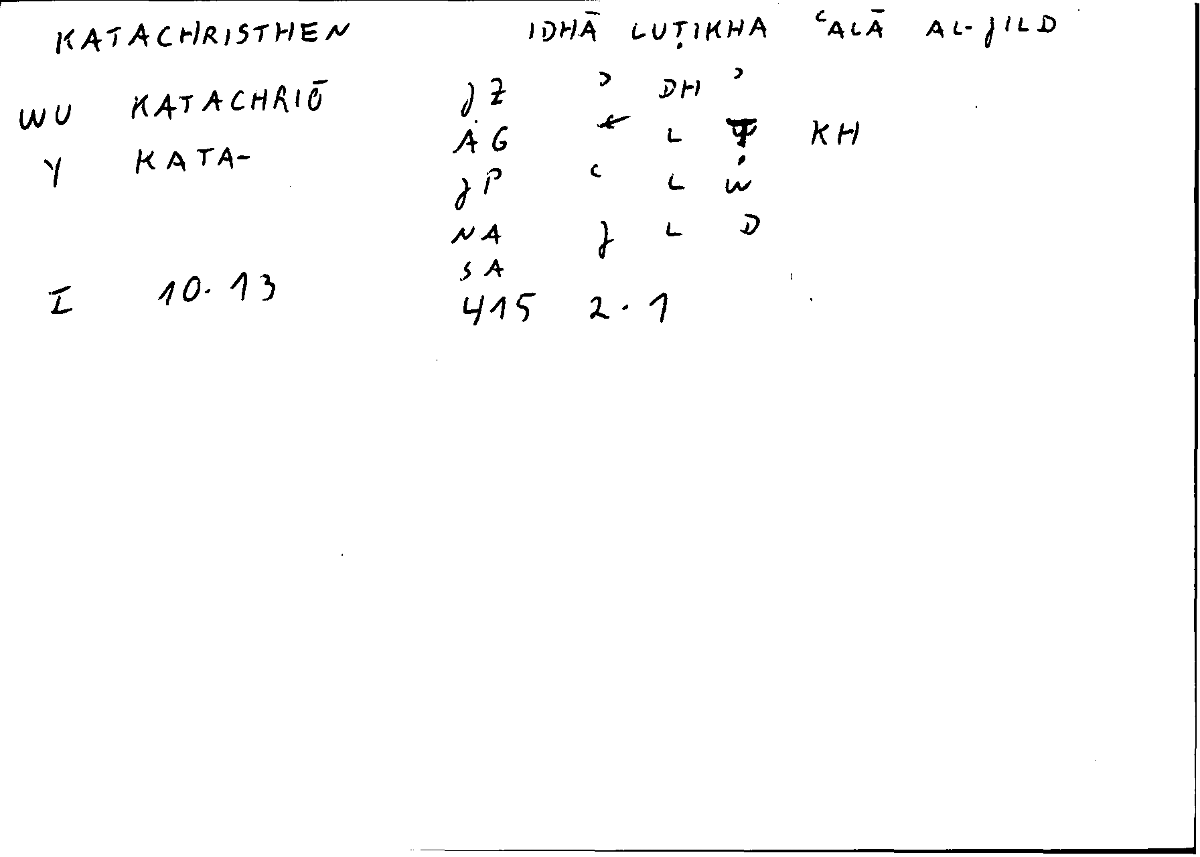 KATACHRISTHEN IDHĀ LUṬIKHA ʿALĀ AL-JILD
WU KATACHRIŌ JZ ʾ DH ʾ
Y KATA- AG L Ṭ KH
JP ʿ L W
NA J L D
SA
I 10.13 415 2.1